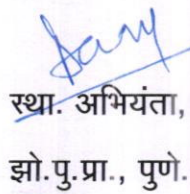 स्था. अभियंता,
झो.पु.प्रा., पुणे.